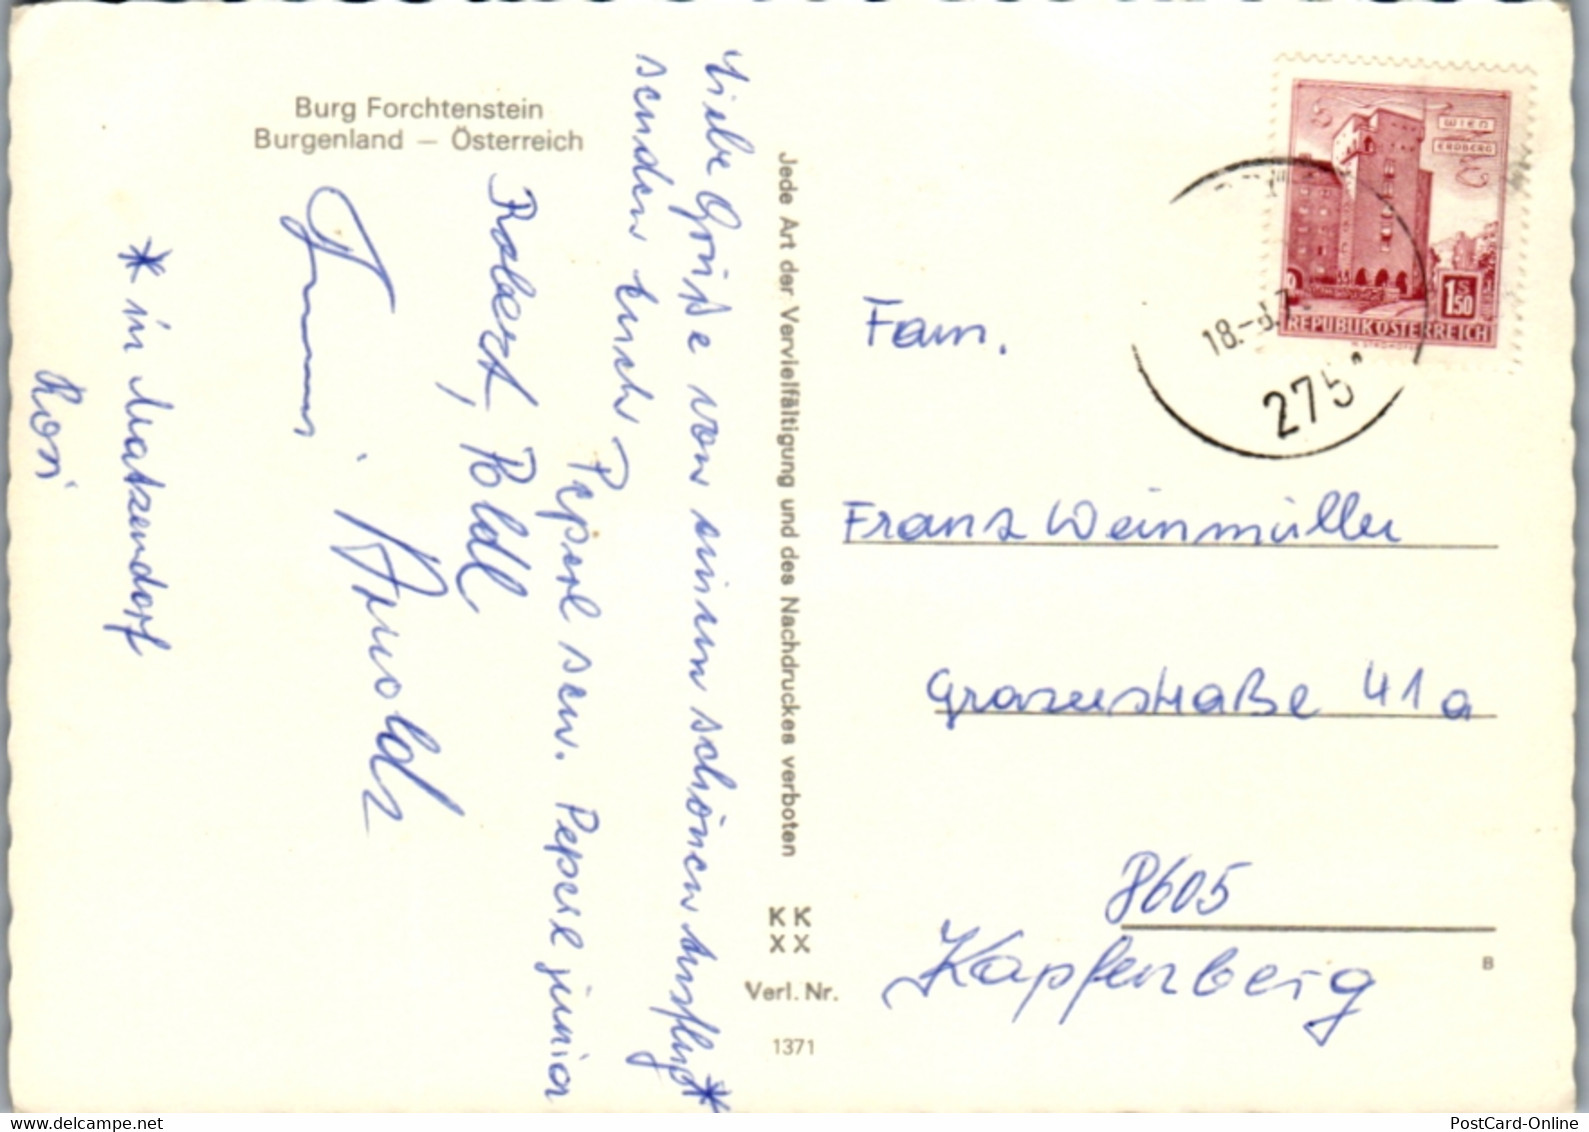 Burg Forchtenstein
Burgenland — Österreich
Liebe Grüße von einem schönen Ausflug*
senden Euch
Peperl sen. Peperl junior
Robert, Poldl
Arnold
* in Matzendorf
Rosi
Jede Art der Vervielfältigung und des Nachdruckes verboten
K K
X X
Verl. Nr.
1371
WIEN
ERDBERG
1 S 50
REPUBLIK ÖSTERREICH
18.-8.7
275
Fam.
Franz Weinmüller
Grazerstraße 41a
8605
Kapfenberg
B
www.delcampe.net
PostCard-Online